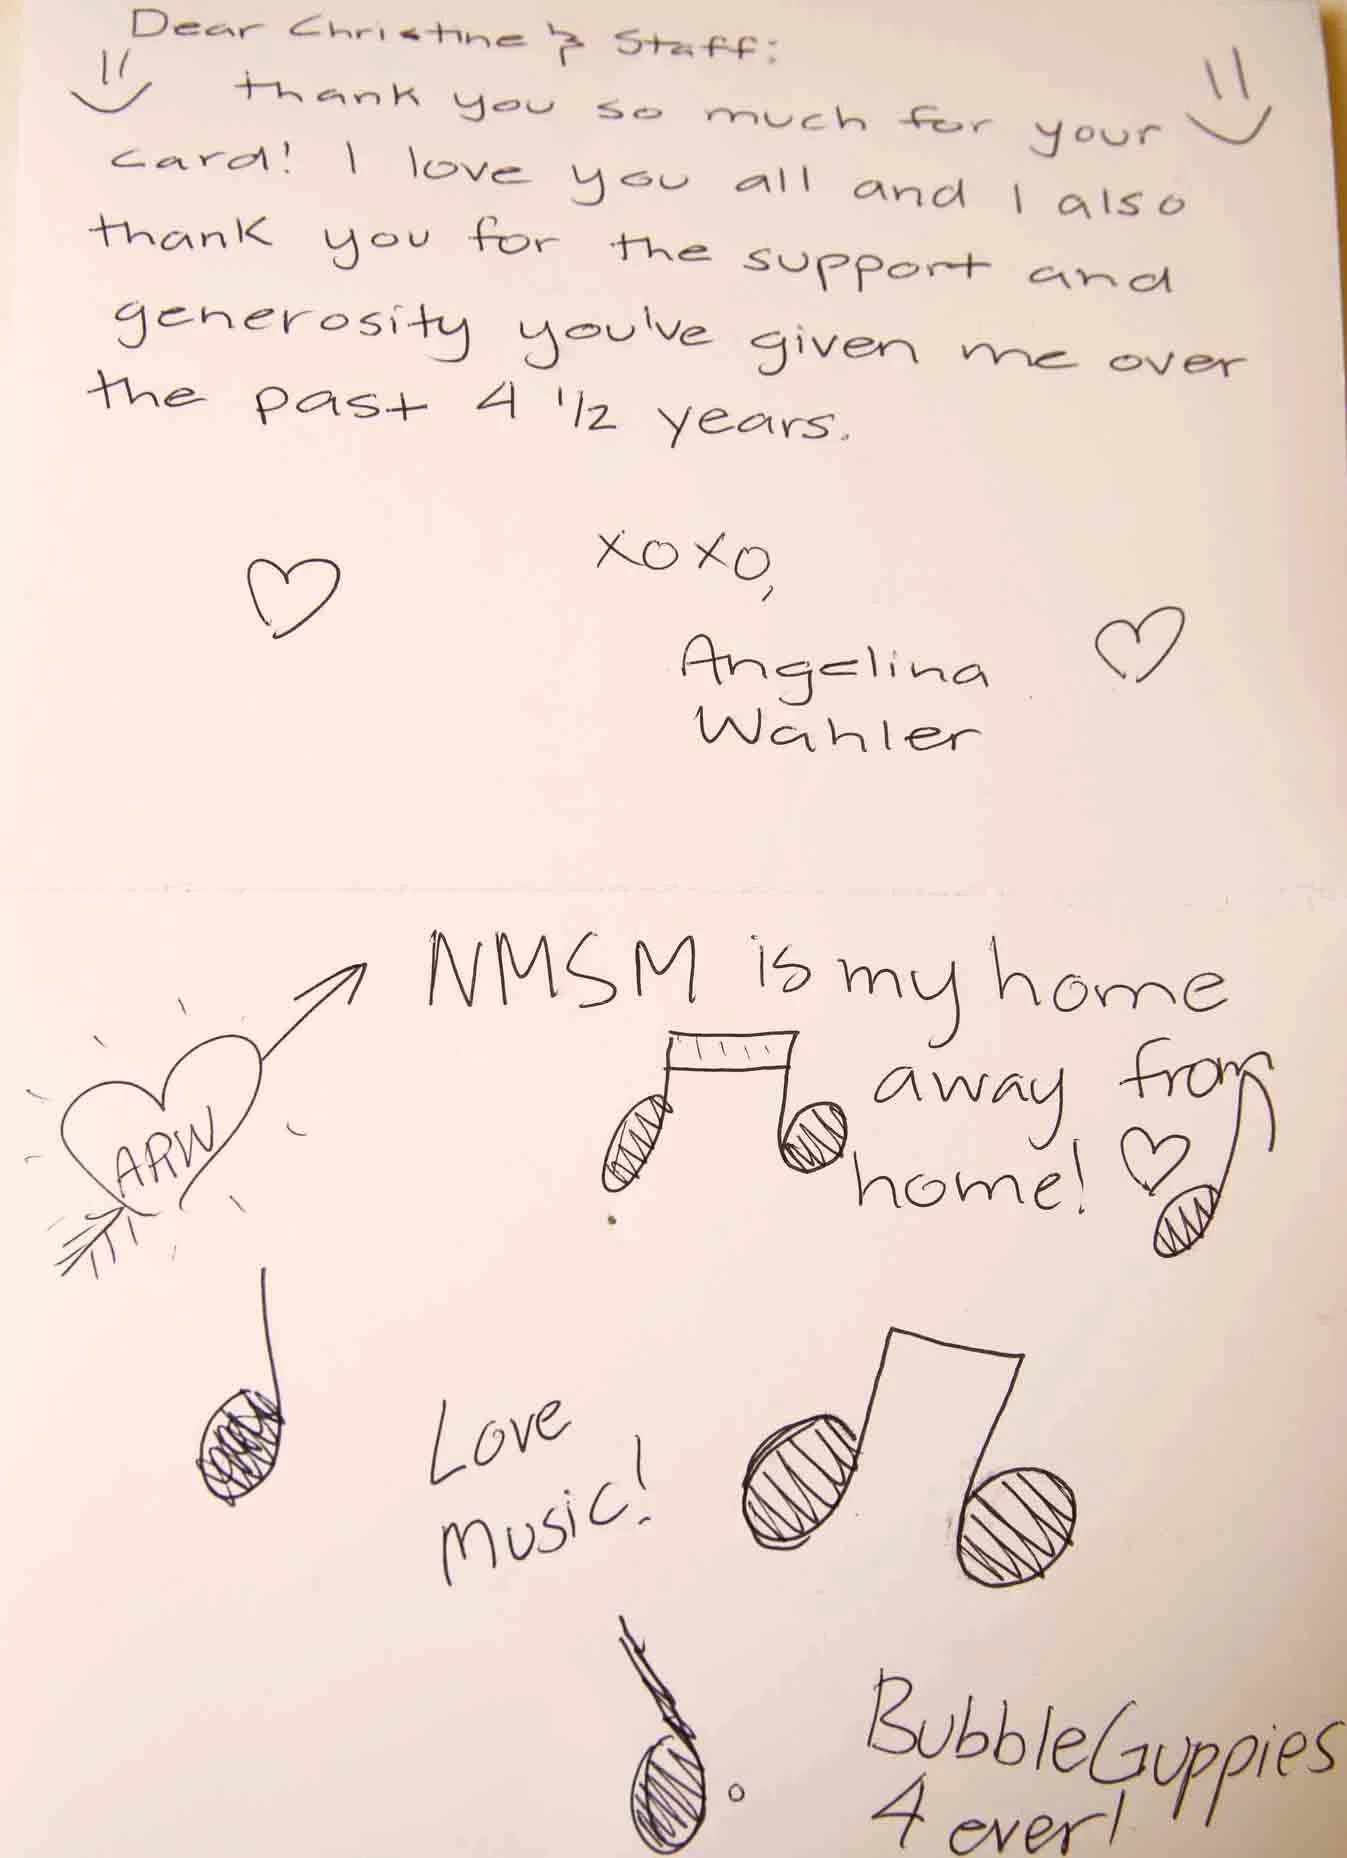 Dear Christine & Staff:
thank you so much for your
card! I love you all and I also
thank you for the support and
generosity you've given me over
the past 4 1/2 years.
xoxo,
Angelina
Wahler
NMSM is my home
away from
home!
ARW
Love
Music!
BubbleGuppies
4 ever!